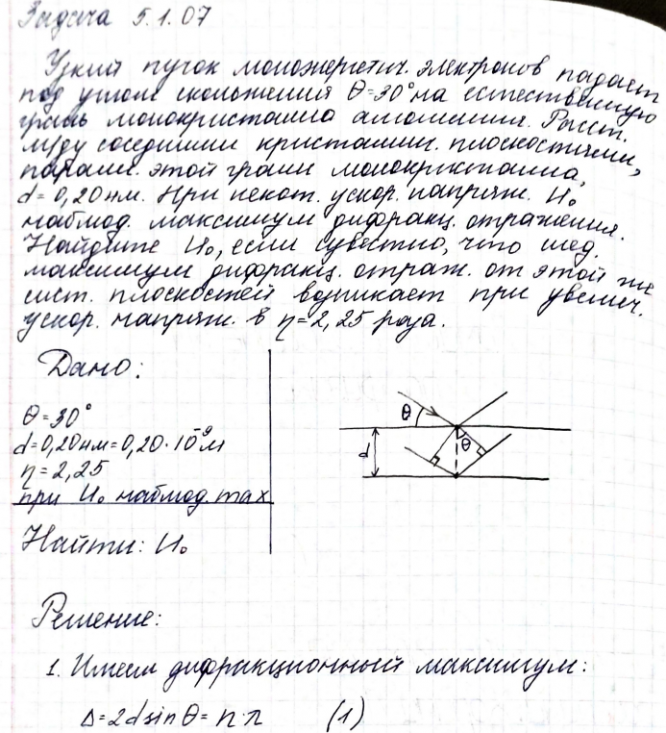 Задача 5.1.07
Узкий пучок моноэнергетич. электронов падает
под углом скольжения θ=30° на естественную
грань монокристалла алюминия. Расст.
м/ду соседними кристаллич. плоскостями,
паралл. этой грани монокристалла,
d = 0,20 нм. При некот. ускор. напряж. U₀
наблюд. максимум дифракц. отражения.
Найдите U₀, если известно, что след.
максимум дифракц. отраж. от этой же
сист. плоскостей возникает при увелич.
ускор. напряж. в η=2,25 раза.
Дано:
θ=30°
d=0,20нм=0,20·10⁻⁹м
η=2,25
при U₀ наблюд. max
Найти: U₀
θ
d
θ
Решение:
1. Имеем дифракционный максимум:
Δ=2d sin θ = n·λ (1)